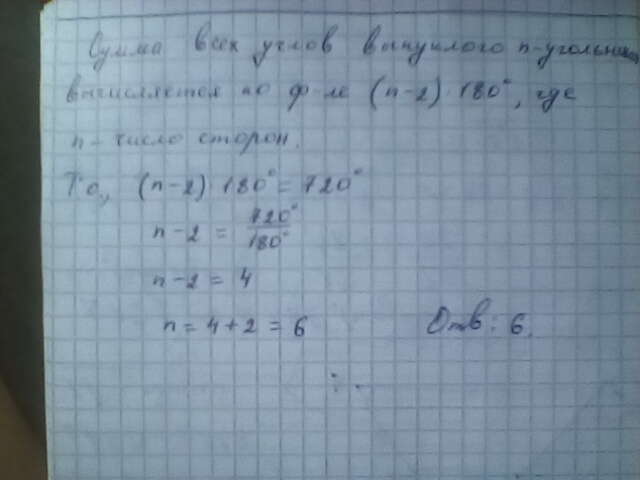 Сумма всех углов выпуклого n-угольника
вычисляется по ф-ле (n-2)·180°, где
n - число сторон.
То, (n-2)·180°=720°
n-2 = 720°/180°
n-2 = 4
n = 4+2 = 6
Отв: 6.